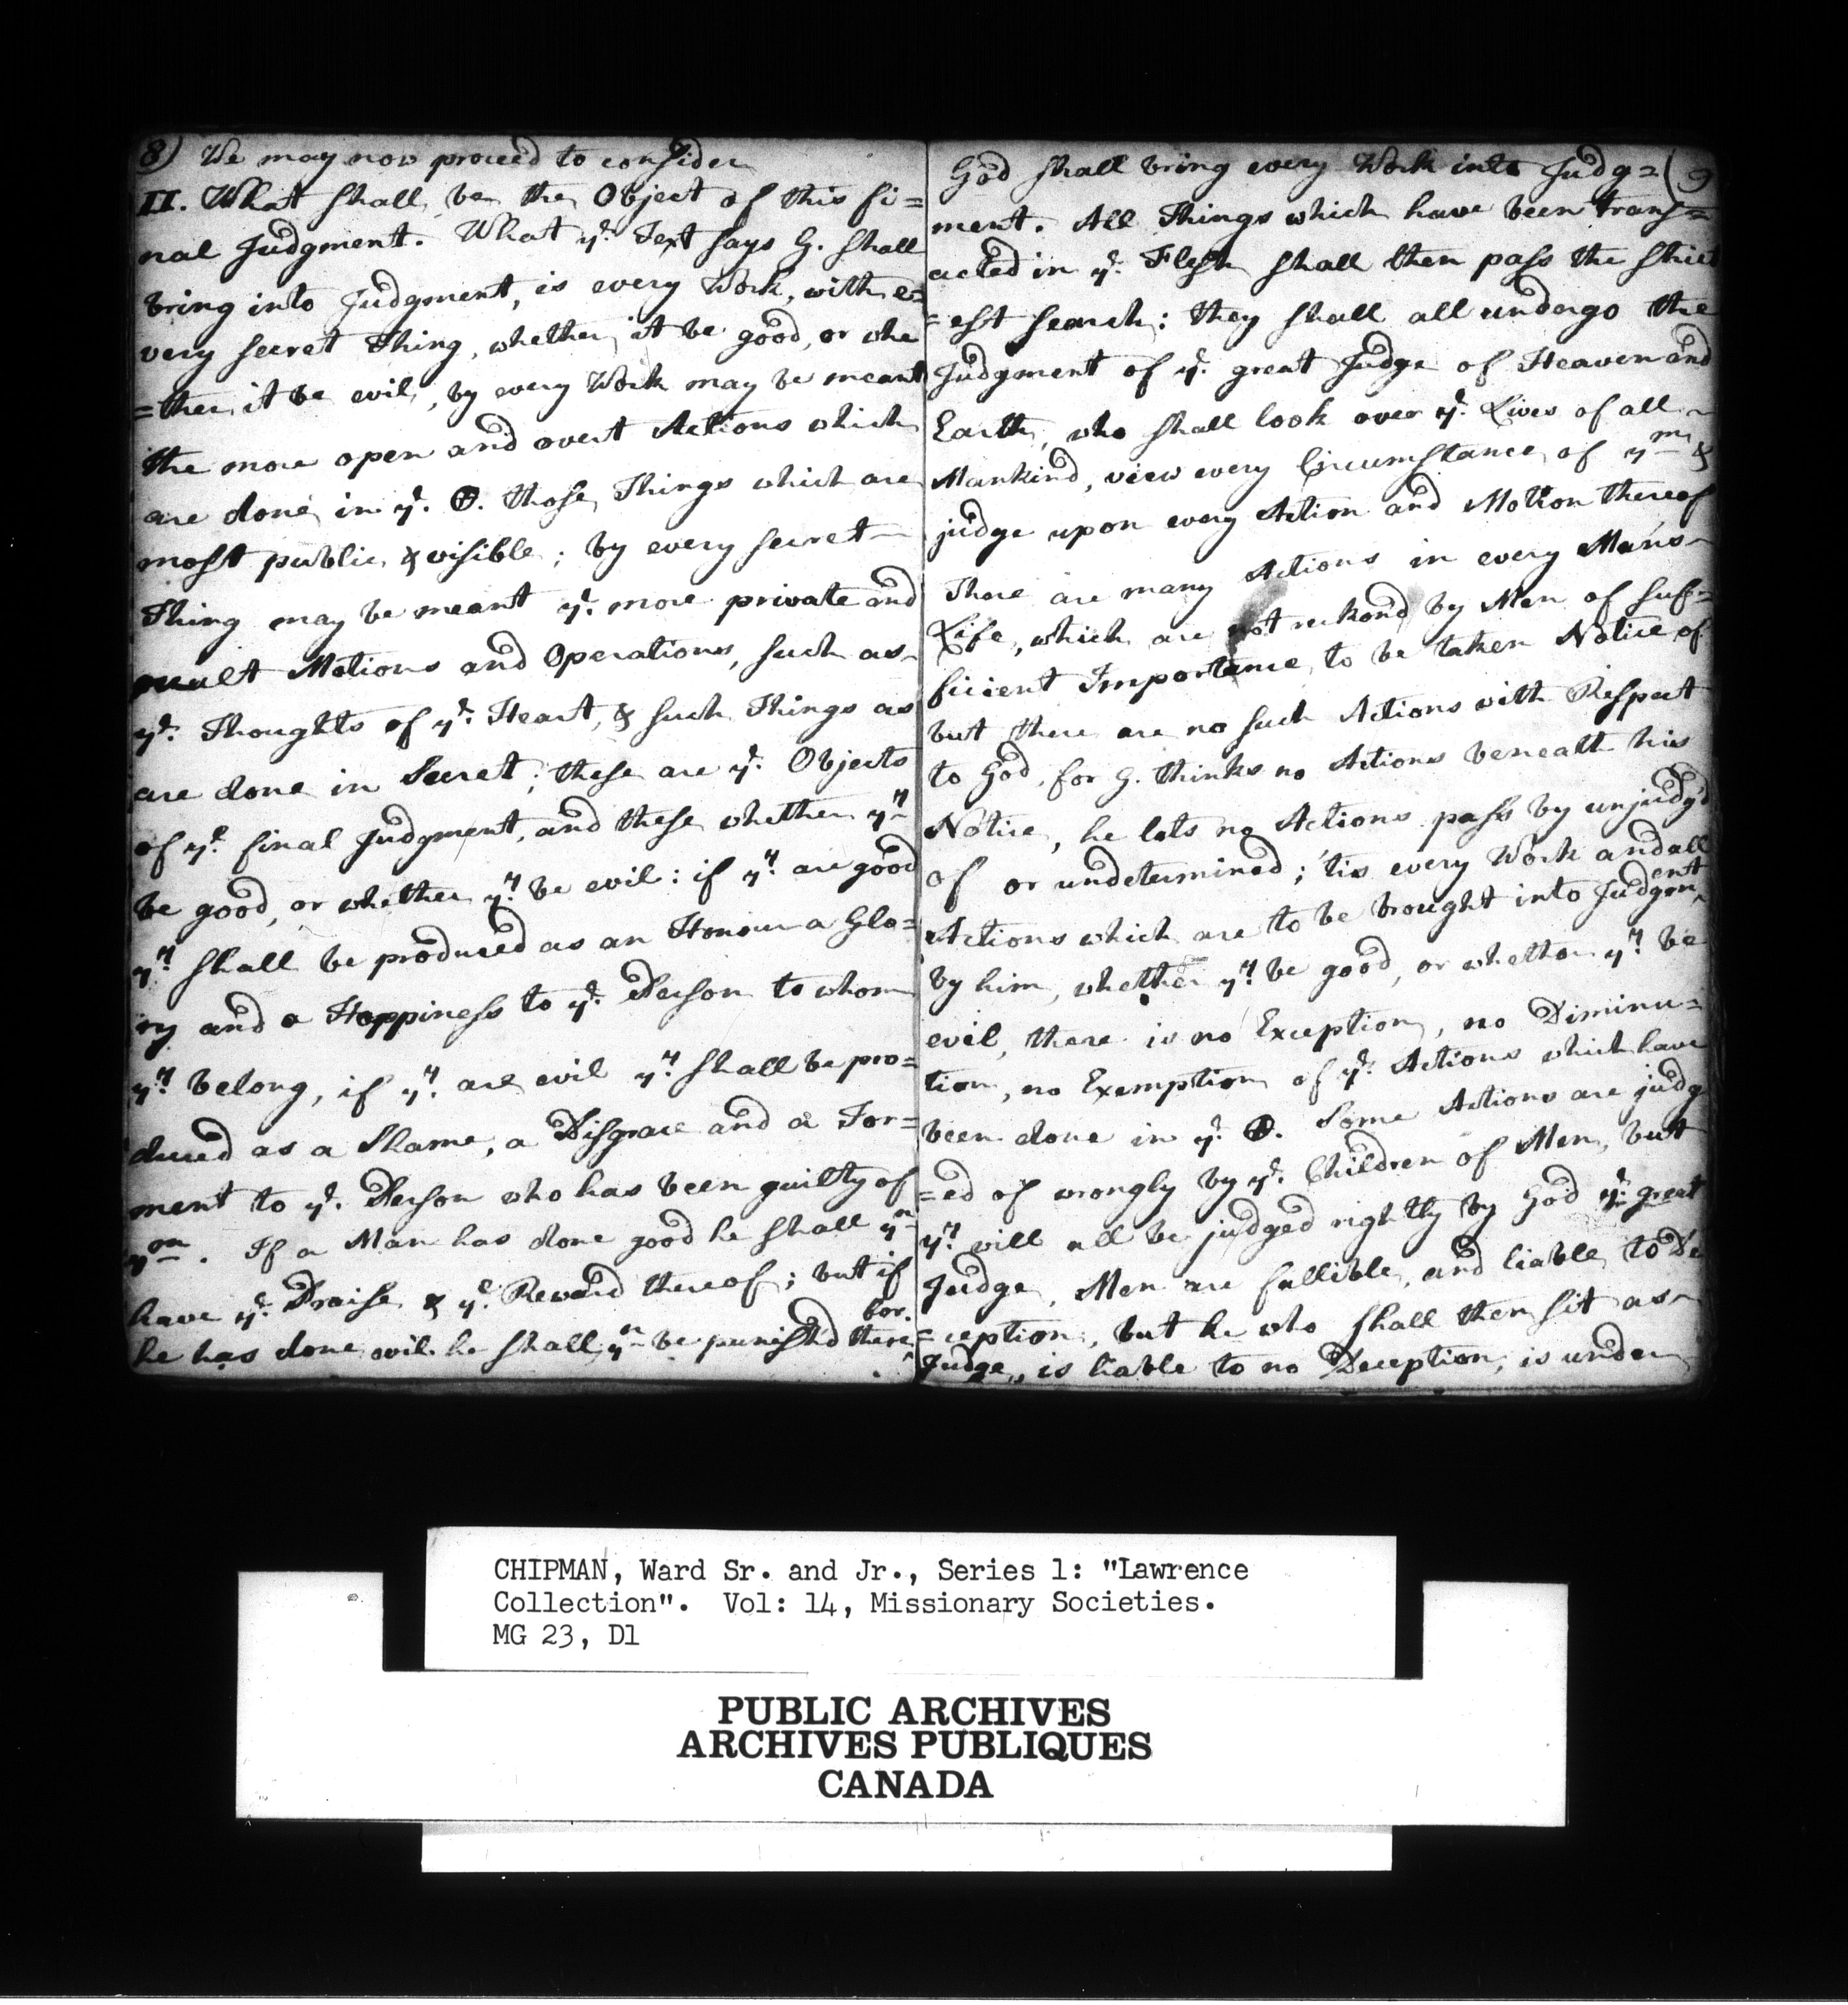 8) We may now proceed to consider
II. What shall be the Object of this fi=
nal Judgment. What yͤ. Text says G. shall
bring into Judgment, is every Work, with e=
very secret Thing, whether it be good, or whe
=ther it be evil, by every Work may be meant
the more open and overt Actions which
are done in yͤ. ⊕. those Things which are
most public & visible; by every secret
Thing may be meant yͤ. more private and
occult Motions and Operations, such as
yͤ. Thoughts of yͤ. Heart, & such Things as
are done in Secret; these are yͤ. Objects
of yͤ. final Judgment, and these whether yʸ
be good, or whether yʸ. be evil: if yʸ. are good
yʸ. shall be produced as an Honour a Glo=
ry and a Happiness to yͤ. Person to whom
yʸ. belong, if yʸ. are evil yʸ. shall be pro=
duced as a Shame, a Disgrace and a Tor=
ment to yͤ. Person who has been guilty of
yᵐ. If a Man has done good he shall yⁿ
have yͤ. Praise & yͤ. Reward thereof; but if
he has done evil he shall yⁿ be punish'd there^for.
God shall bring every Work into Judg= (9
ment. All Things which have been trans=
acted in yͤ. Flesh shall then pass the strict
=est search: they shall all undergo the
Judgment of yͤ. great Judge of Heaven and
Earth, who shall look over yͤ. Lives of all
Mankind, view every Circumstance of yᵐ &
judge upon every Action and Motion thereof
There are many Actions in every Man's
Life, which are not reckon'd by Men of suf=
ficient Importance to be taken Notice of
but there are no such Actions with Respect
to God, for G. thinks no Actions beneath his
Notice, he lets no Actions pass by unjudg'd
of or undetermined; 'tis every Work and all
Actions which are to be brought into Judgm^ent
by him, whether yʸ. be good, or whether yʸ. be
evil, there is no Exception, no Diminu=
tion, no Exemption of yͤ. Actions which have
been done in yͤ. ⊕. Some Actions are judg
=ed of wrongly by yͤ. Children of Men, but
yʸ. will all be judged rightly by God yͤ. great
Judge, Men are fallible, and liable to De
=ception, but he who shall then sit as
Judge, is liable to no Deception, is under
CHIPMAN, Ward Sr. and Jr., Series 1: "Lawrence
Collection". Vol: 14, Missionary Societies.
MG 23, D1
PUBLIC ARCHIVES
ARCHIVES PUBLIQUES
CANADA